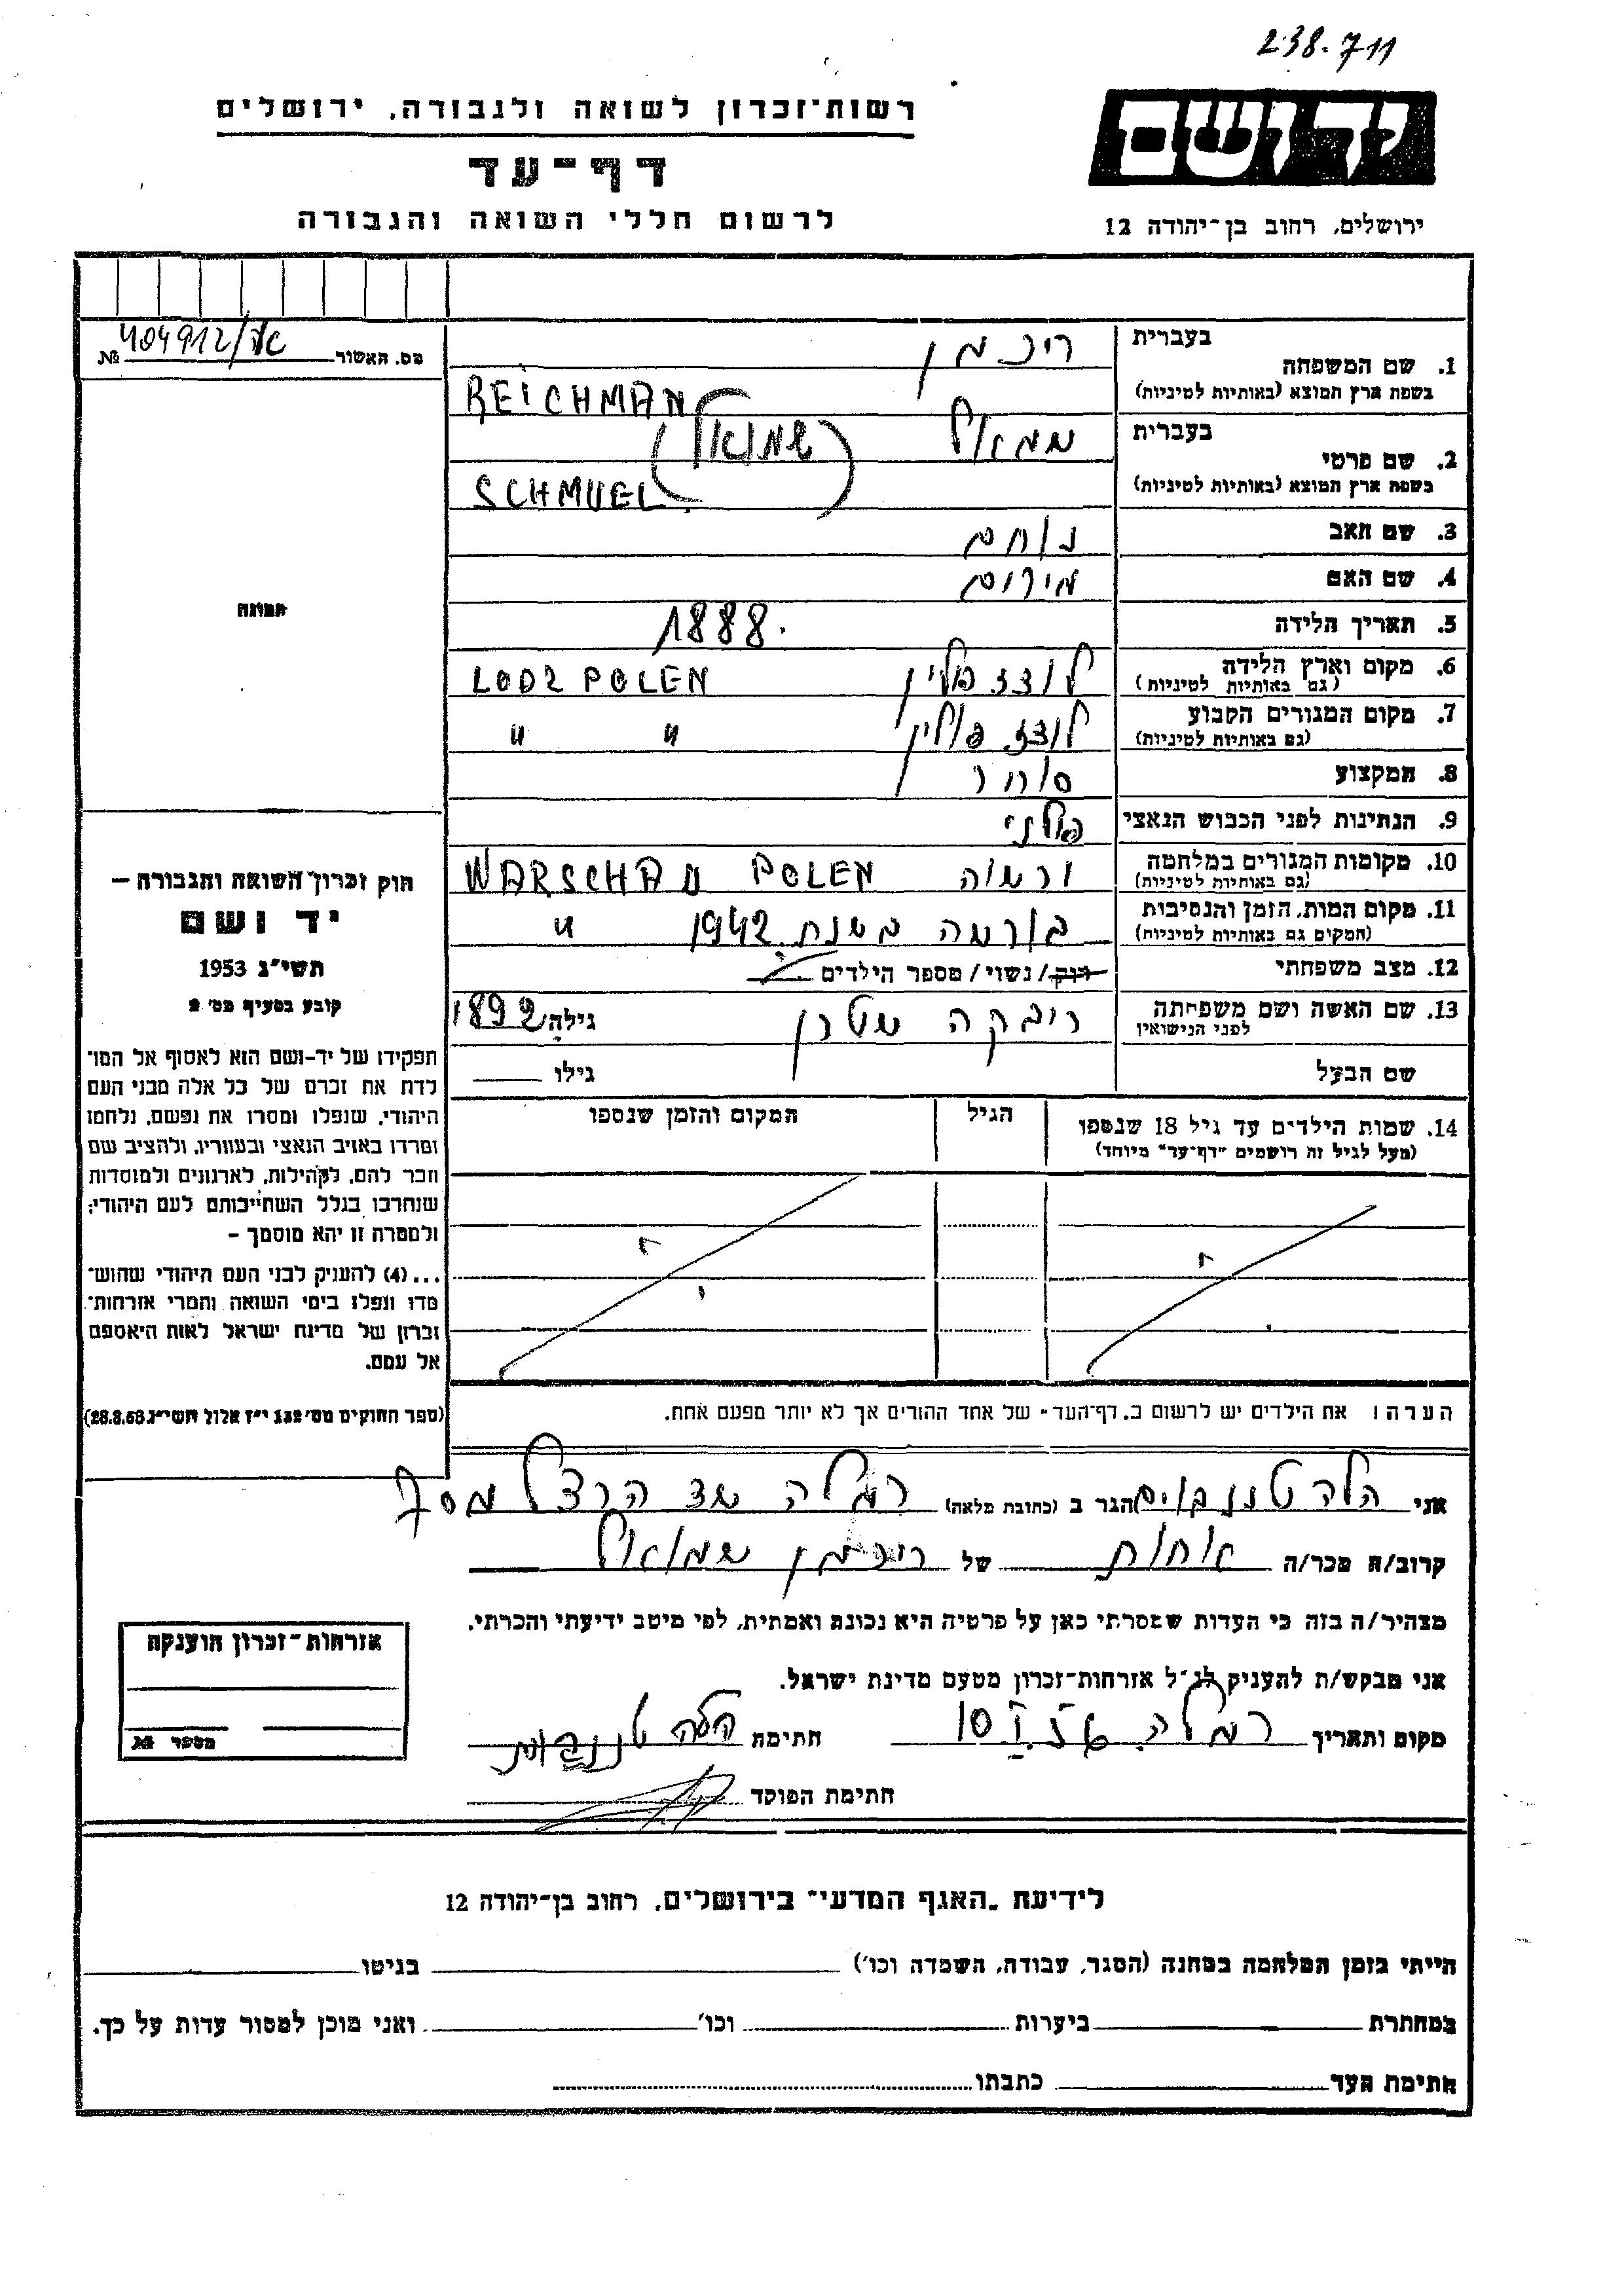 238.711
רשות־זכרון לשואה ולגבורה, ירושלים
יד ושם
דף־עד
לרשום חללי השואה והגבורה
ירושלים, רחוב בן־יהודה 12
מס. האשור № 404912/
1. שם המשפחה
בעברית ריכמן
בשפת ארץ המוצא (באותיות לטיניות) REICHMAN
2. שם פרטי
בעברית שמואל (שמואל)
בשפת ארץ המוצא (באותיות לטיניות) SCHMUEL
3. שם האב נוחם
4. שם האם מירים
תמונה
5. תאריך הלידה 1888.
6. מקום וארץ הלידה לודז פולין LODZ POLEN
(גם באותיות לטיניות)
7. מקום המגורים הקבוע לודז פולין " "
(גם באותיות לטיניות)
8. המקצוע סוחר
9. הנתינות לפני הכבוש הנאצי פולני
10. מקומות המגורים במלחמה ורשה WARSCHAU POLEN
(גם באותיות לטיניות)
11. מקום המות, הזמן והנסיבות בורשה בשנת 1942 "
(המקום גם באותיות לטיניות)
12. מצב משפחתי רוק/נשוי/מספר הילדים
13. שם האשה ושם משפחתה רבקה שטרן גילה 1892
לפני הנישואין
שם הבעל גילו
14. שמות הילדים עד גיל 18 שנספו הגיל המקום והזמן שנספו
(מעל לגיל זה רושמים "דף־עד" מיוחד)
הערה: את הילדים יש לרשום ב„דף־העד" של אחד ההורים אך לא יותר מפעם אחת.
חוק זכרון השואה והגבורה —
יד ושם
תשי"ג 1953
קובע בסעיף מס' 2
תפקידו של יד-ושם הוא לאסוף אל המו־
לדת את זכרם של כל אלה מבני העם
היהודי, שנפלו ומסרו את נפשם, נלחמו
ומרדו באויב הנאצי ובעוזריו, ולהציב שם
וזכר להם, לקהילות, לארגונים ולמוסדות
שנחרבו בגלל השתייכותם לעם היהודי;
ולמטרה זו יהא מוסמך —
...(4) להעניק לבני העם היהודי שהוש־
מדו ונפלו בימי השואה והמרי אזרחות־
זכרון של מדינת ישראל לאות היאספם
אל עמם.
(ספר החוקים מס' 132 י"ז אלול תשי"ג 28.8.53)
אני הלה הגר ב (כתובת מלאה) רמלה שד הרצל
קרוב/ה מכר/ה אחות של ריכמן שמואל
מצהיר/ה בזה כי העדות שמסרתי כאן על פרטיה היא נכונה ואמתית, לפי מיטב ידיעתי והכרתי.
אני מבקש/ת להעניק לנ"ל אזרחות־זכרון מטעם מדינת ישראל.
מקום ותאריך רמלה חתימת הלה
חתימת הפוקד
אזרחות־זכרון הוענקה
מספר №
לידיעת „האגף המדעי" בירושלים, רחוב בן־יהודה 12
הייתי בזמן המלחמה במחנה (הסגר, עבודה, השמדה וכו') בגיטו
במחתרת ביערות וכו' ואני מוכן למסור עדות על כך.
חתימת העד כתבתו